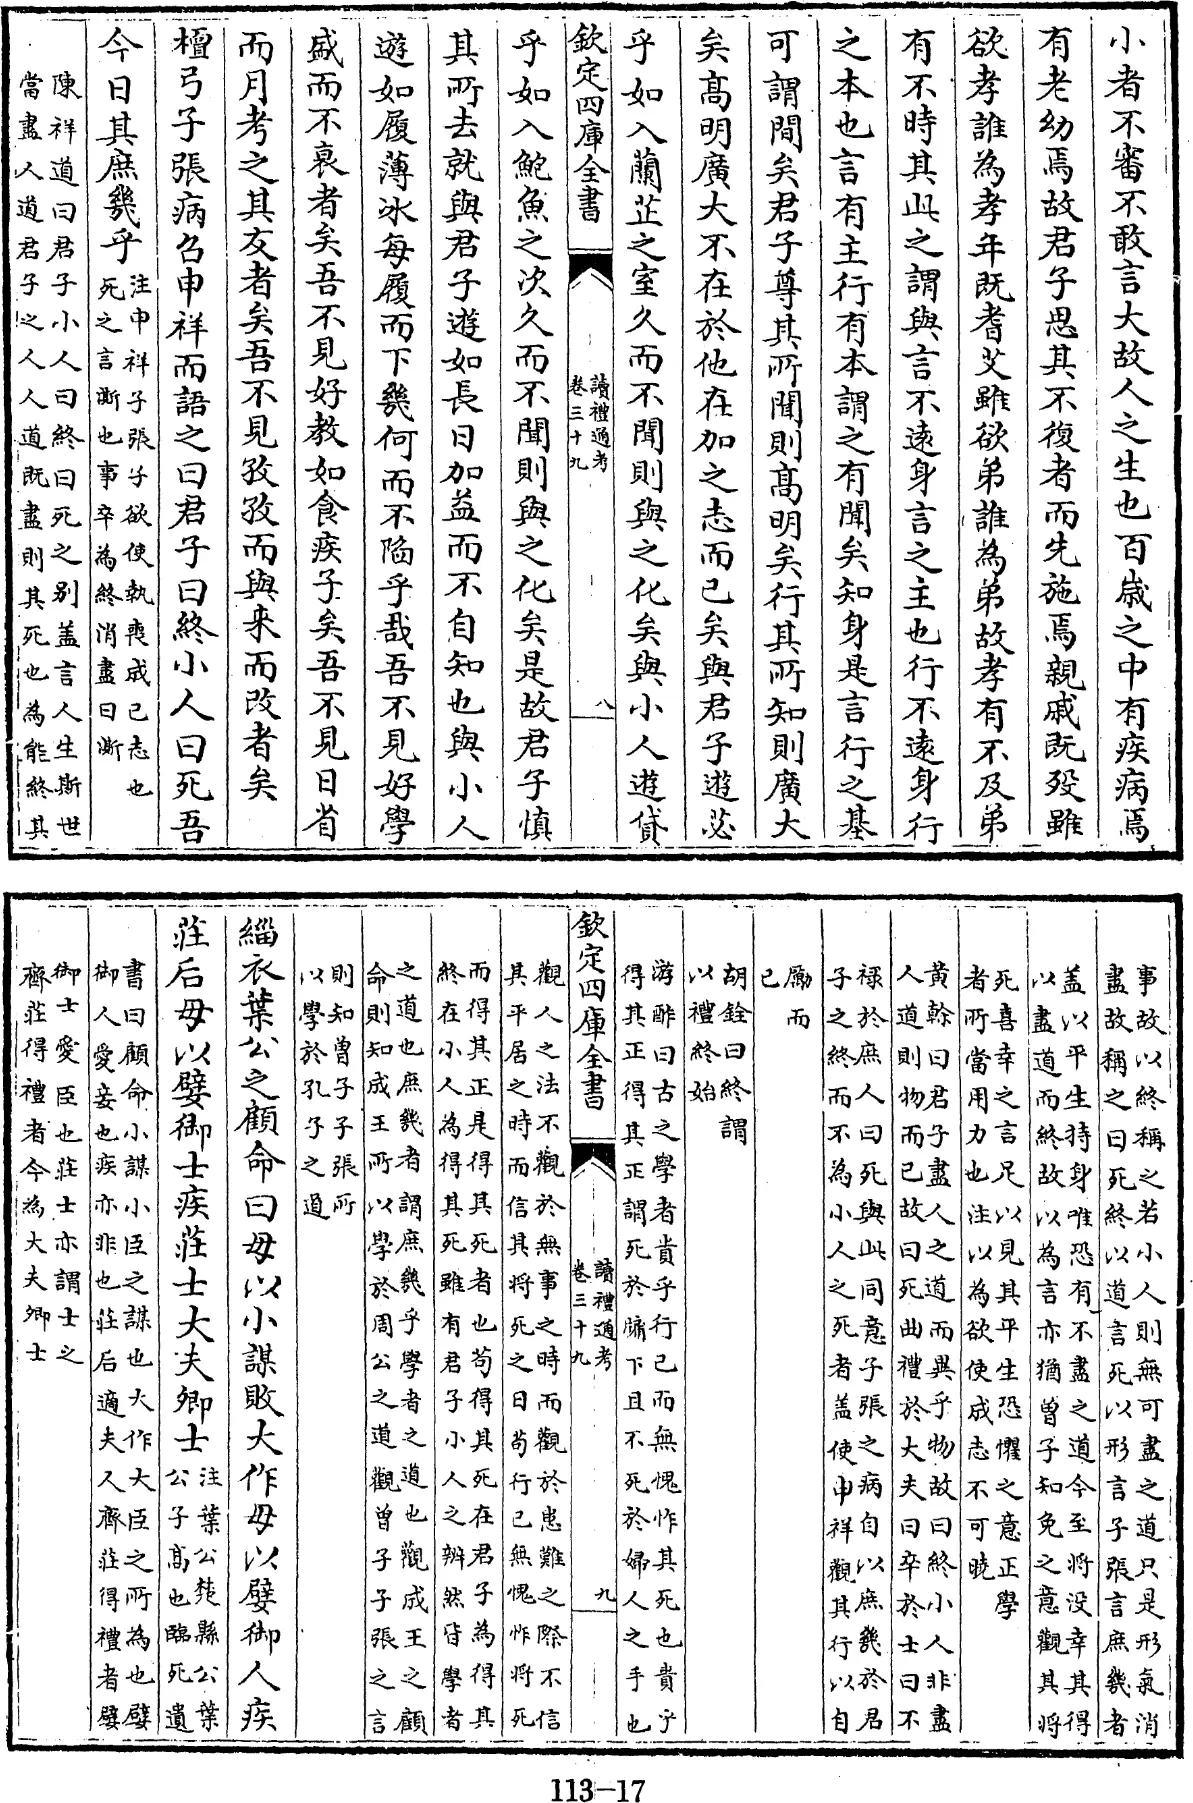 小者不審不敢言大故人之生也百歲之中有疾病焉
有老幼焉故君子思其不復者而先施焉親戚既歿雖
欲孝誰為孝年既耆艾雖欲弟誰為弟故孝有不及弟
有不時其此之謂與言不遠身言之主也行不遠身行
之本也言有主行有本謂之有聞矣知身是言行之基
可謂間矣君子尊其所聞則高明矣行其所知則廣大
矣高明廣大不在於他在加之志而已矣與君子遊苾
乎如入蘭芷之室久而不聞則與之化矣與小人遊貸
欽定四庫全書
讀禮通考
卷三十九
八
乎如入鮑魚之次久而不聞則與之化矣是故君子慎
其所去就與君子遊如長日加益而不自知也與小人
遊如履薄冰每履而下幾何而不陷乎哉吾不見好學
盛而不衰者矣吾不見好教如食疾子矣吾不見日省
而月考之其友者矣吾不見孜孜而與来而改者矣
檀弓子張病召申祥而語之曰君子曰終小人曰死吾
今日其庶幾乎
注申祥子張子欲使執喪成己志也
死之言澌也事卒為終消盡曰澌
陳祥道曰君子小人曰終曰死之别盖言人生斯世
當盡人道君子之人人道既盡則其死也為能終其
事故以終稱之若小人則無可盡之道只是形氣消
盡故稱之曰死終以道言死以形言子張言庶幾者
盖以平生持身唯恐有不盡之道今至將没幸其得
以盡道而終故以為言亦猶曾子知免之意觀其將
死喜幸之言足以見其平生恐懼之意正學
者所當用力也注以為欲使成志不可曉
黄榦曰君子盡人之道而異乎物故曰終小人非盡
人道則物而已故曰死曲禮於大夫曰卒於士曰不
禄於庶人曰死與此同意子張之病自以庶幾於君
子之終而不為小人之死者盖使申祥觀其行以自
勵而
已
胡銓曰終謂
以禮終始
游酢曰古之學者貴乎行己而無愧怍其死也貴乎
得其正得其正謂死於牖下且不死於婦人之手也
欽定四庫全書
讀禮通考
卷三十九
九
觀人之法不觀於無事之時而觀於患難之際不信
其平居之時而信其將死之日苟行己無愧怍將死
而得其正是得其死者也苟得其死在君子為得其
終在小人為得其死雖有君子小人之辨然皆學者
之道也庶幾者謂庶幾乎學者之道也觀成王之顧
命則知成王所以學於周公之道觀曾子子張之言
則知曾子子張所
以學於孔子之道
緇衣葉公之顧命曰毋以小謀敗大作毋以嬖御人疾
莊后毋以嬖御士疾莊士大夫卿士
注葉公楚縣公葉
公子髙也臨死遺
書曰顧命小謀小臣之謀也大作大臣之所為也嬖
御人愛妾也疾亦非也莊后適夫人齊莊得禮者嬖
御士愛臣也莊士亦謂士之
齊莊得禮者今為大夫卿士
113-17